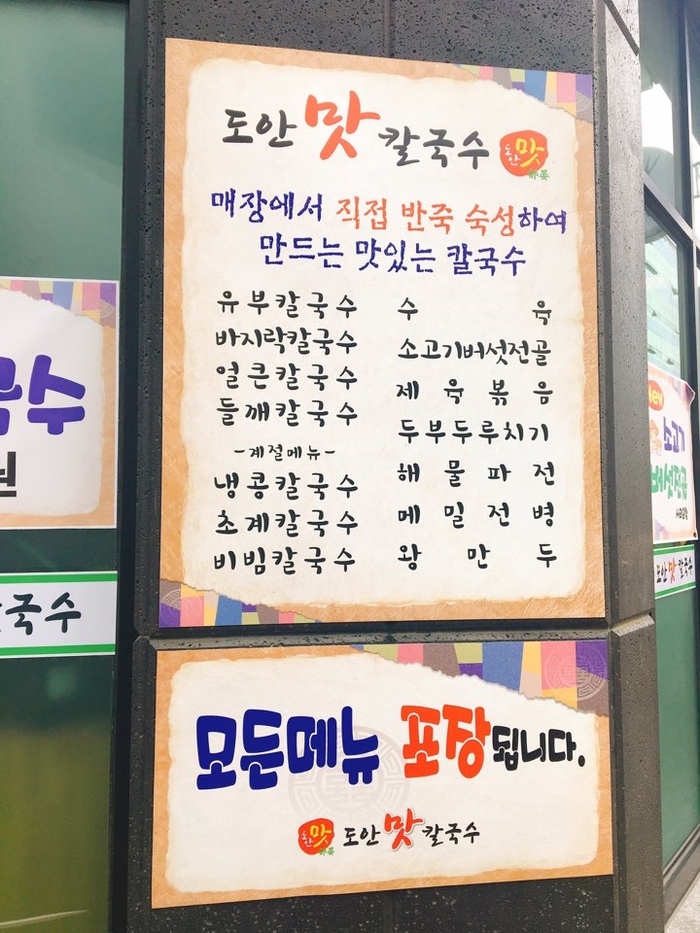 도안 맛 칼국수
도안 맛
매장에서 직접 반죽 숙성하여
만드는 맛있는 칼국수
유부칼국수
바지락칼국수
얼큰칼국수
들깨칼국수
-계절메뉴-
냉콩칼국수
초계칼국수
비빔칼국수
수육
소고기버섯전골
제육볶음
두부두루치기
해물파전
메밀전병
왕만두
모든메뉴 포장됩니다.
도안 맛
도안 맛 칼국수
국수
국수
New
소고기
버섯전골
도안 맛 칼국수